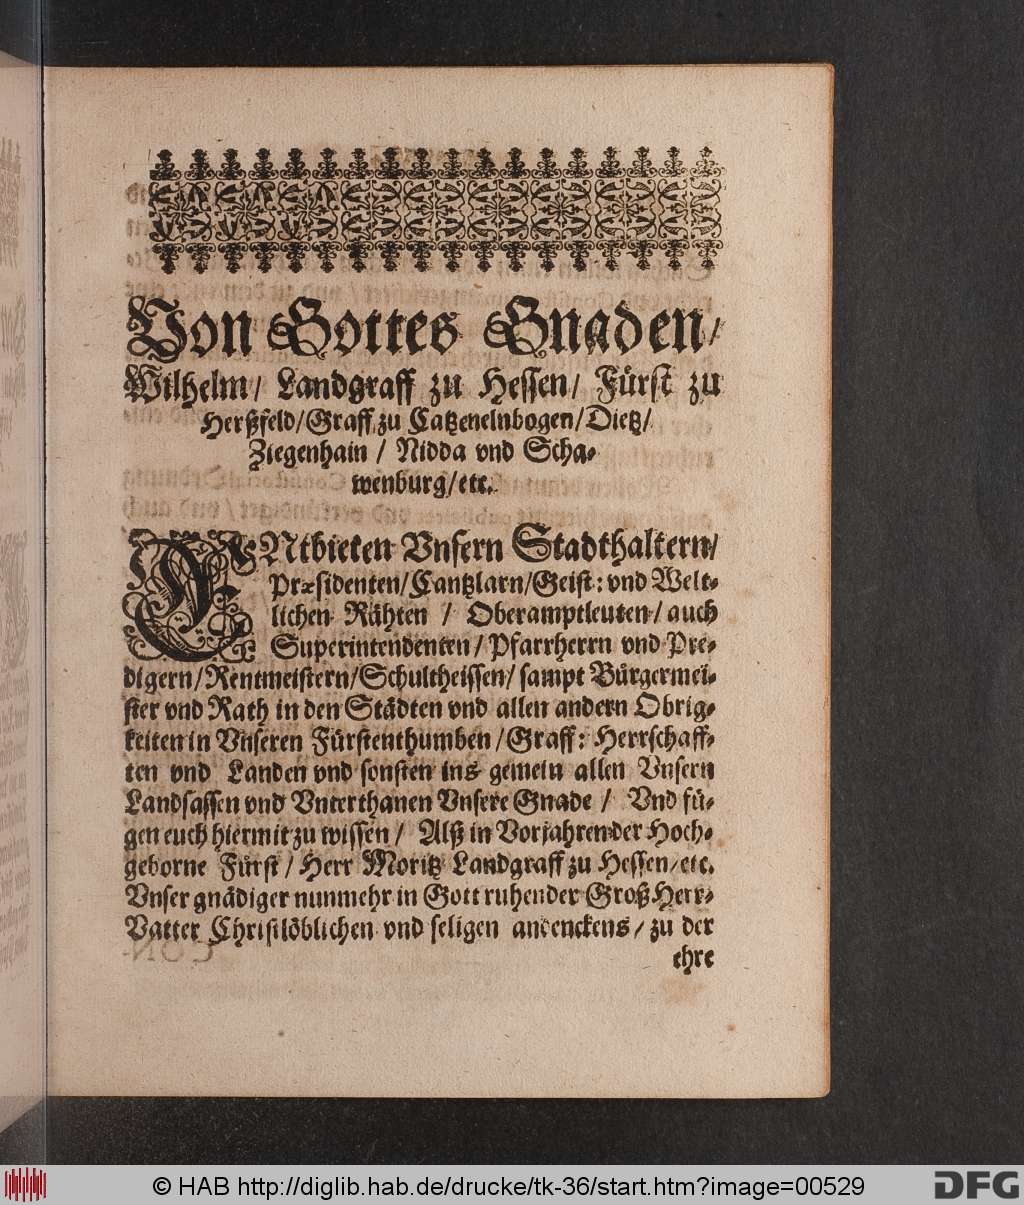 Von Gottes Gnaden/
Wilhelm/ Landgraff zu Hessen/ Fürst zu
Herßfeld/Graff zu Catzenelnbogen/Dietz/
Ziegenhain / Nidda vnd Scha-
wenburg/etc.
ENtbieten Vnsern Stadthaltern/
Præsidenten/Cantzlarn/Geist: vnd Welt-
lichen Rähten / Oberamptleuten/auch
Superintendenten/Pfarrherrn vnd Pre-
digern/Rentmeistern/Schultheissen/ sampt Bürgermei-
ster vnd Rath in den Städten vnd allen andern Obrig-
keiten in Vnseren Fürstenthumben/Graff: Herrschaff-
ten vnd Landen vnd sonsten ins gemein allen Vnsern
Landsassen vnd Vnterthanen Vnsere Gnade / Vnd fü-
gen euch hiermit zu wissen/ Alß in Vorjahren der Hoch-
geborne Fürst/ Herr Moritz Landgraff zu Hessen/etc.
Vnser gnädiger nunmehr in Gott ruhender Groß Herr-
Vatter Christlöblichen vnd seligen andenckens/ zu der
ehre
© HAB http://diglib.hab.de/drucke/tk-36/start.htm?image=00529
DFG